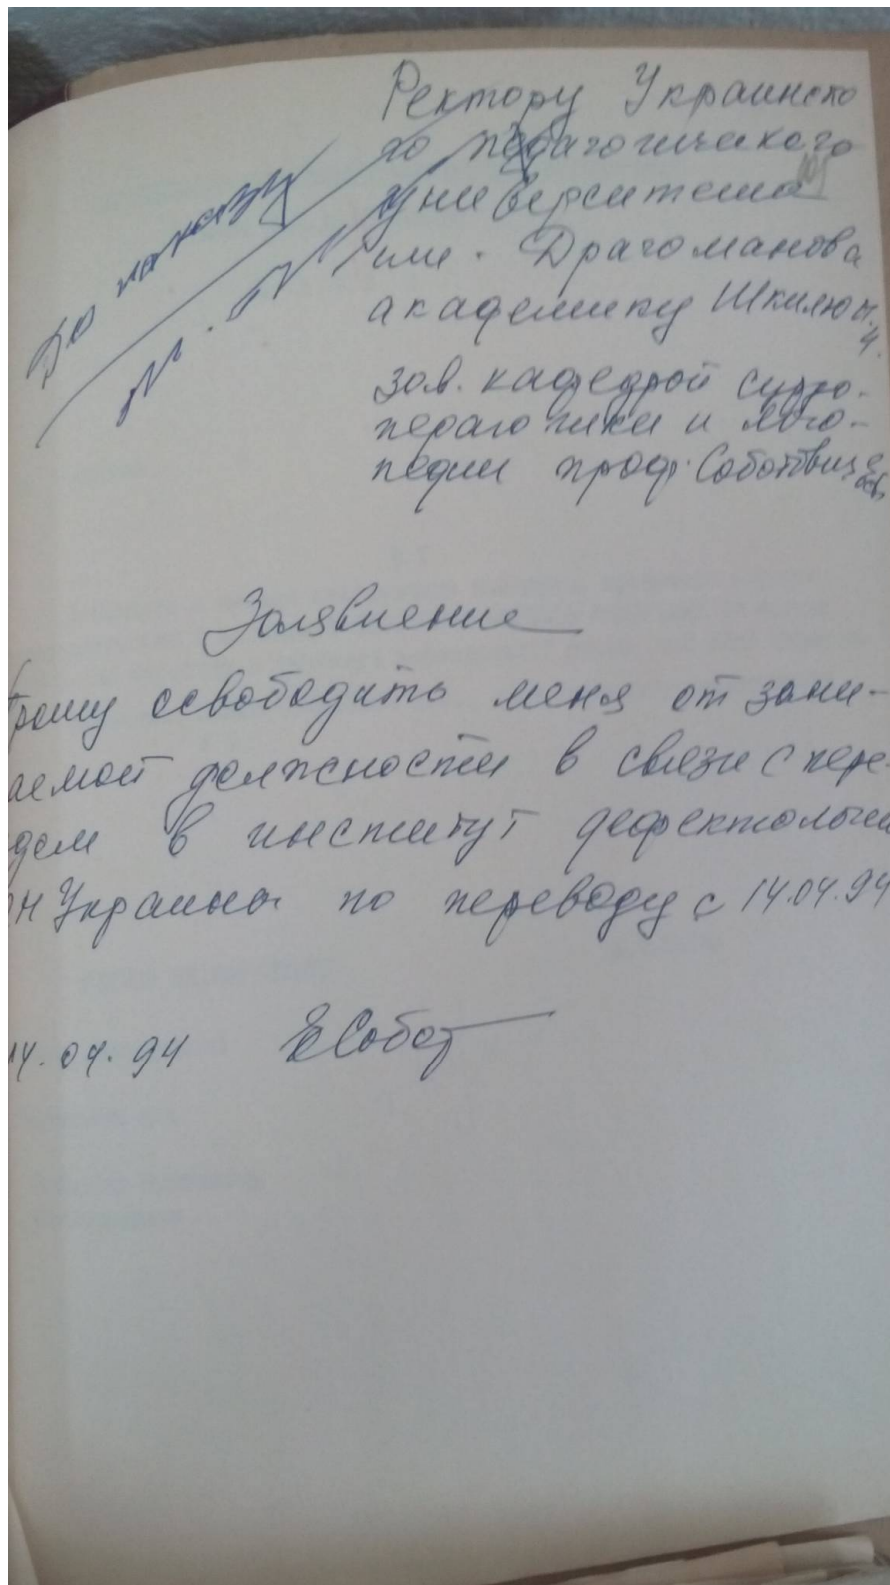 До наказу
Ректору Украинско
го педагогического
университета
им. Драгоманова
академику Шкилю М.
И.
зав. кафедрой сурдо-
педагогики и лого-
педии проф. Соботович
Заявление
Прошу освободить меня от зани-
аемой должности в связи с пере-
дом в институт дефектологии
Н Украины по переводу с 14.04.94
14.04.94 ЕСобот